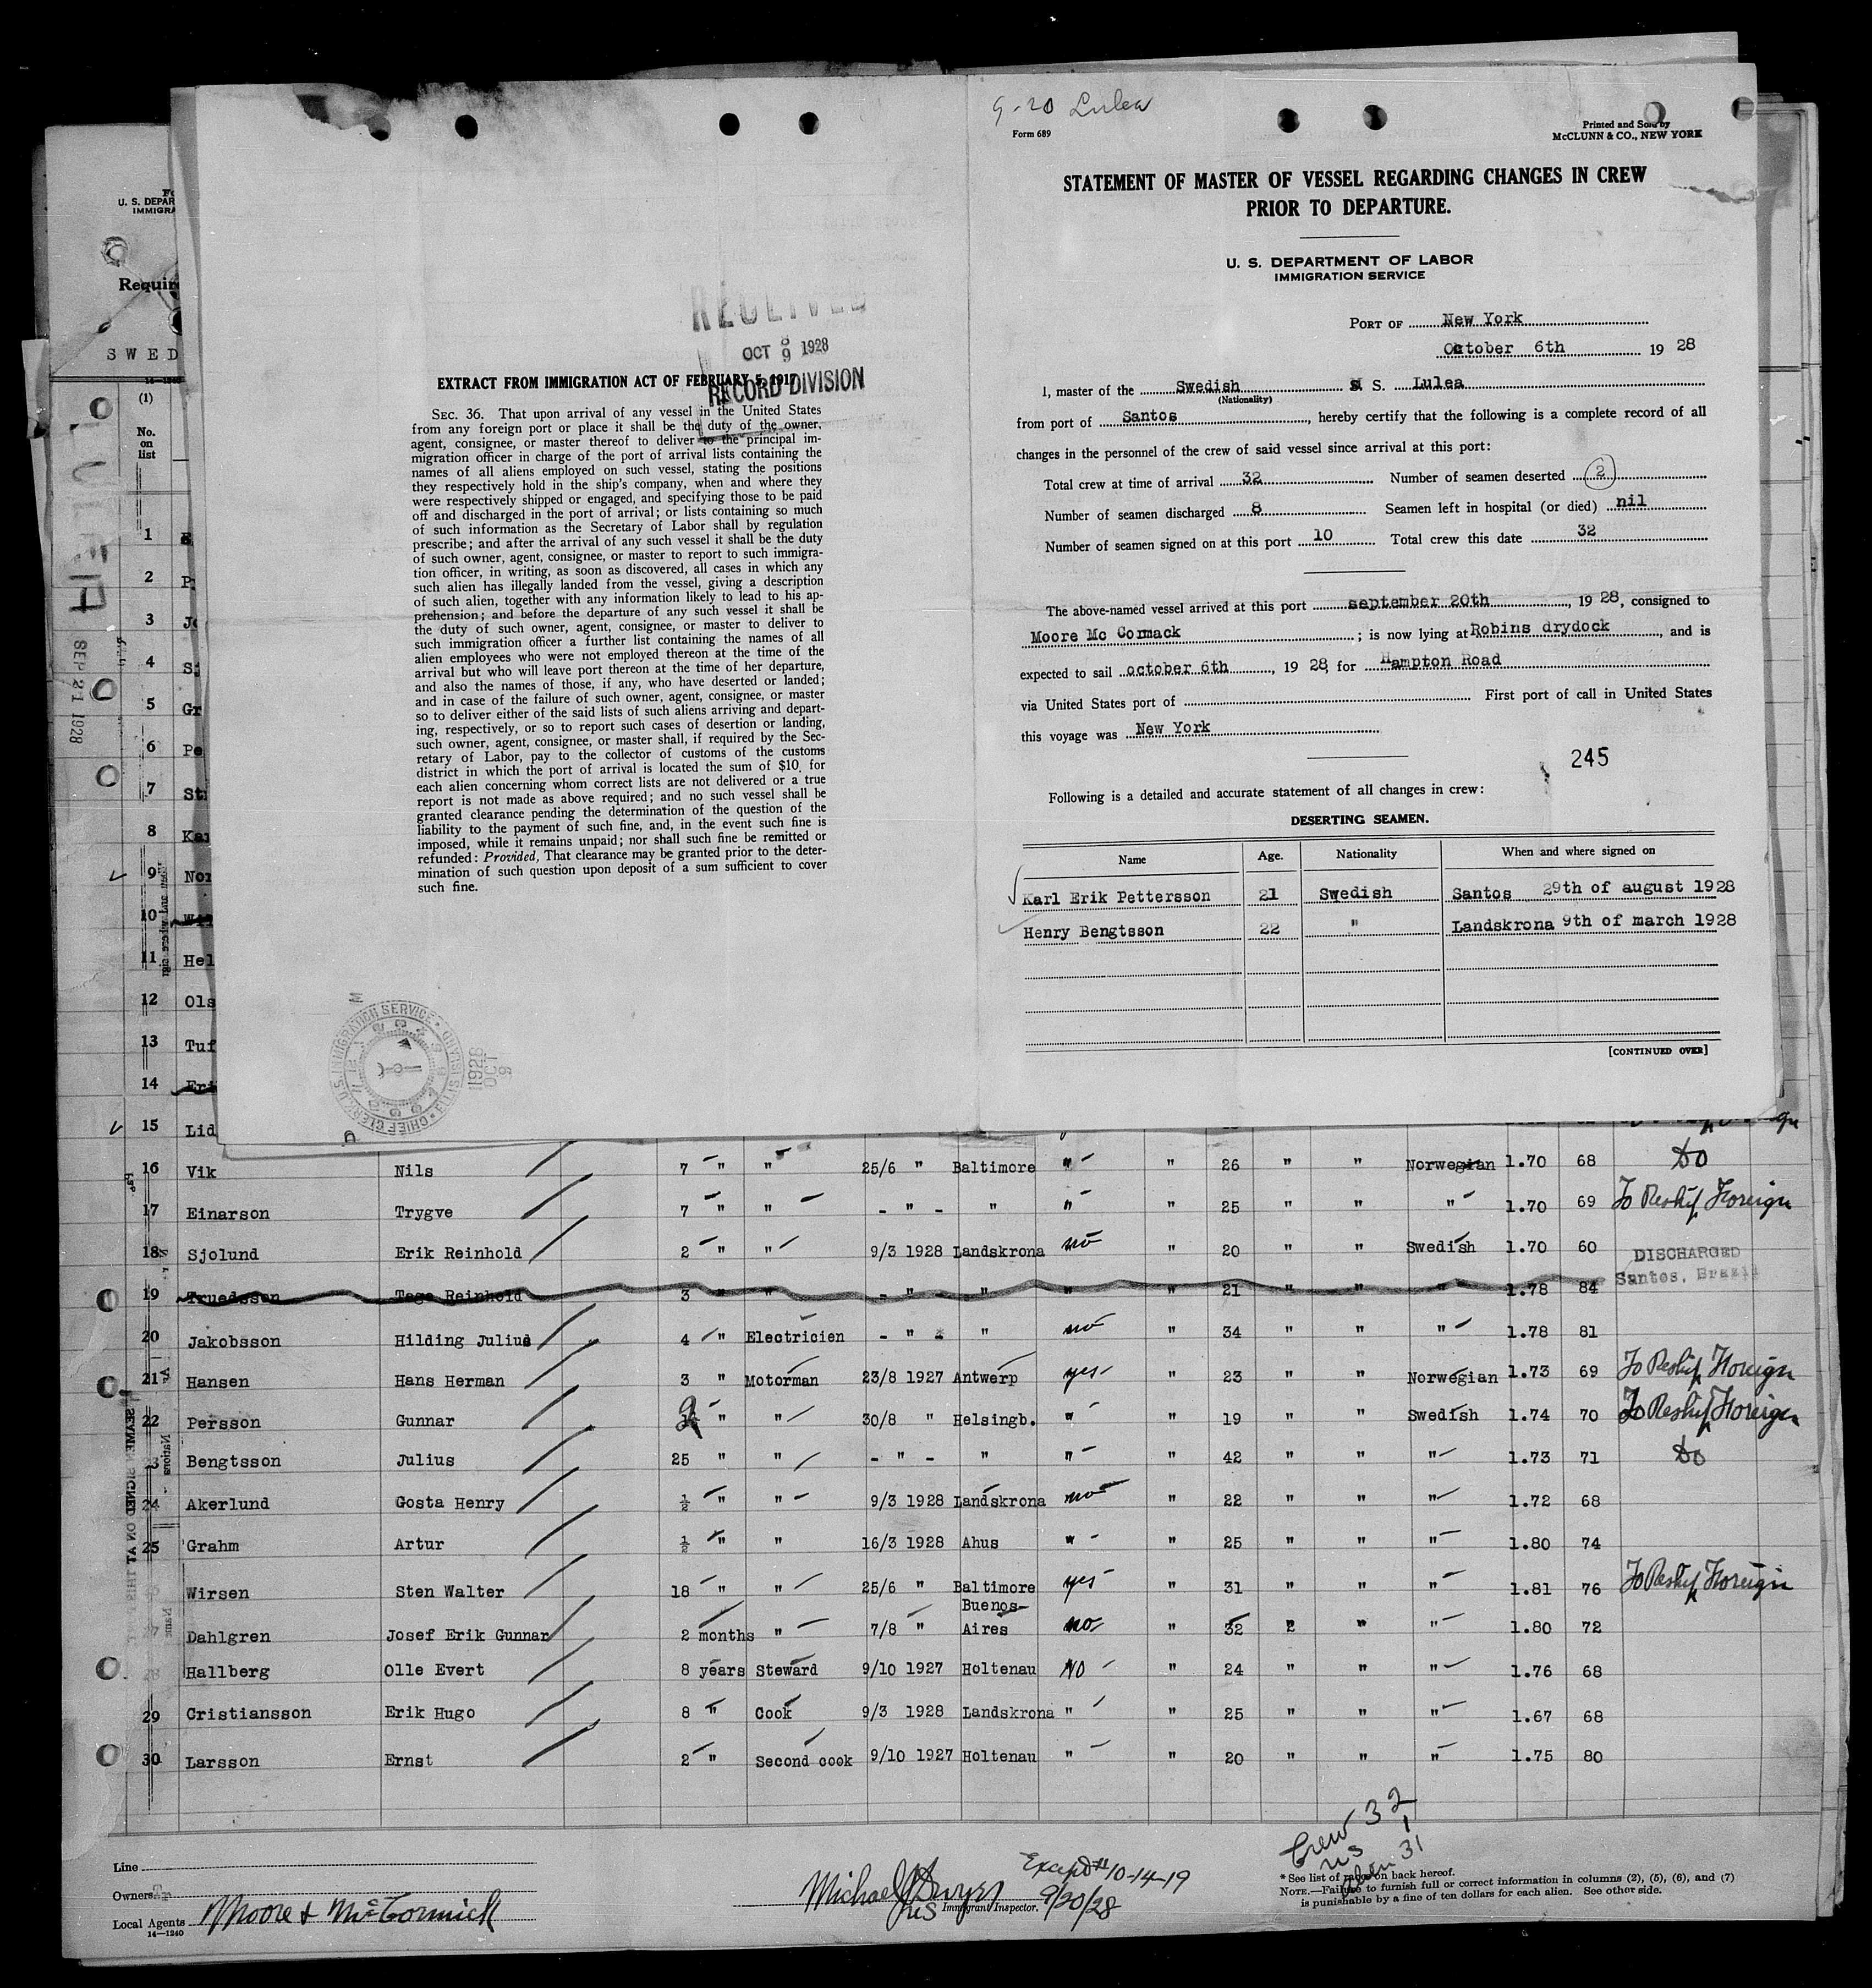 9-20 Lulea
Form 689
Printed and Sold by
McCLUNN & CO., NEW YORK
STATEMENT OF MASTER OF VESSEL REGARDING CHANGES IN CREW
PRIOR TO DEPARTURE.
U. S. DEPARTMENT OF LABOR
IMMIGRATION SERVICE
PORT OF New York
October 6th 19 28
I, master of the Swedish M S. Lulea
(Nationality)
from port of Santos, hereby certify that the following is a complete record of all
changes in the personnel of the crew of said vessel since arrival at this port:
Total crew at time of arrival 32 Number of seamen deserted 2
Number of seamen discharged 8 Seamen left in hospital (or died) nil
Number of seamen signed on at this port 10 Total crew this date 32
The above-named vessel arrived at this port september 20th, 19 28, consigned to
Moore Mc Cormack ; is now lying at Robins drydock, and is
expected to sail october 6th, 19 28, for Hampton Road
via United States port of First port of call in United States
this voyage was New York
245
Following is a detailed and accurate statement of all changes in crew:
DESERTING SEAMEN.
Name Age. Nationality When and where signed on
Karl Erik Pettersson 21 Swedish Santos 29th of august 1928
Henry Bengtsson 22 " Landskrona 9th of march 1928
[CONTINUED OVER]
RECEIVED
OCT 9 1928
RECORD DIVISION
EXTRACT FROM IMMIGRATION ACT OF FEBRUARY 5, 1917
SEC. 36. That upon arrival of any vessel in the United States
from any foreign port or place it shall be the duty of the owner,
agent, consignee, or master thereof to deliver to the principal im-
migration officer in charge of the port of arrival lists containing the
names of all aliens employed on such vessel, stating the positions
they respectively hold in the ship's company, when and where they
were respectively shipped or engaged, and specifying those to be paid
off and discharged in the port of arrival; or lists containing so much
of such information as the Secretary of Labor shall by regulation
prescribe; and after the arrival of any such vessel it shall be the duty
of such owner, agent, consignee, or master to report to such immigra-
tion officer, in writing, as soon as discovered, all cases in which any
such alien has illegally landed from the vessel, giving a description
of such alien, together with any information likely to lead to his ap-
prehension; and before the departure of any such vessel it shall be
the duty of such owner, agent, consignee, or master to deliver to
such immigration officer a further list containing the names of all
alien employees who were not employed thereon at the time of the
arrival but who will leave port thereon at the time of her departure,
and also the names of those, if any, who have deserted or landed;
and in case of the failure of such owner, agent, consignee, or master
so to deliver either of the said lists of such aliens arriving and depart-
ing, respectively, or so to report such cases of desertion or landing,
such owner, agent, consignee, or master shall, if required by the Sec-
retary of Labor, pay to the collector of customs of the customs
district in which the port of arrival is located the sum of $10 for
each alien concerning whom correct lists are not delivered or a true
report is not made as above required; and no such vessel shall be
granted clearance pending the determination of the question of the
liability to the payment of such fine, and, in the event such fine is
imposed, while it remains unpaid; nor shall such fine be remitted or
refunded: Provided, That clearance may be granted prior to the deter-
mination of such question upon deposit of a sum sufficient to cover
such fine.
CHIEF CLERK U.S. IMMIGRATION SERVICE ELLIS ISLAND
1928 OCT 9
U. S. DEPAR
IMMIGRA
Requir
SWED
SEP 21 1928
(1)
No.
on
list
1
2
3 Jo
4
5 Gr
6 Pe
7 St
8 Kar
9 Nor
10
11 Hel
12 Ols
13 Tuf
14 Eri
15 Lid
16 Vik Nils 7 " " 25/6 " Baltimore " " 26 " " Norwegian 1.70 68 Do
17 Einarson Trygve 7 " " - " - " " " 25 " " " 1.70 69 To Reship Foreign
18 Sjolund Erik Reinhold 2 " " 9/3 1928 Landskrona no " 20 " " Swedish 1.70 60
DISCHARGED
Santos, Brazil
19 Truedsson Tage Reinhold 3 " " - " - " " " 21 " " " 1.78 84
20 Jakobsson Hilding Julius 4 " Electricien - " - " no " 34 " " " 1.78 81
21 Hansen Hans Herman 3 " Motorman 23/8 1927 Antwerp yes " 23 " " Norwegian 1.73 69 To Reship Foreign
22 Persson Gunnar 2 " " 30/8 " Helsingb. " " 19 " " Swedish 1.74 70 To Reship Foreign
23 Bengtsson Julius 25 " " - " - " " " 42 " " " 1.73 71 Do
24 Akerlund Gosta Henry ½ " " 9/3 1928 Landskrona no " 22 " " " 1.72 68
25 Grahm Artur ½ " " 16/3 1928 Ahus " " 25 " " " 1.80 74
Wirsen Sten Walter 18 " " 25/6 " Baltimore yes " 31 " " " 1.81 76 To Reship Foreign
27 Dahlgren Josef Erik Gunnar 2 months " 7/8 " Buenos-Aires no " 32 " " " 1.80 72
28 Hallberg Olle Evert 8 years Steward 9/10 1927 Holtenau NO " 24 " " " 1.76 68
29 Cristiansson Erik Hugo 8 " Cook 9/3 1928 Landskrona " " 25 " " " 1.67 68
30 Larsson Ernst 2 " Second cook 9/10 1927 Holtenau " " 20 " " " 1.75 80
Crew 32
US 1
Alien 31
Line
Owners
Local Agents Moore & McCormick
14—1240
Michael J Dwyer
Immigrant Inspector.
9/20/28
* See list of races on back hereof.
NOTE.—Failure to furnish full or correct information in columns (2), (5), (6), and (7)
is punishable by a fine of ten dollars for each alien. See other side.